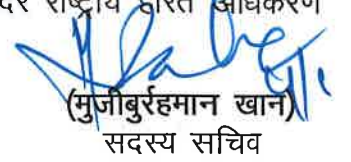 राष्ट्रीय हरित अधिकरण
(मुजीबुर्रहमान खान)
सदस्य सचिव